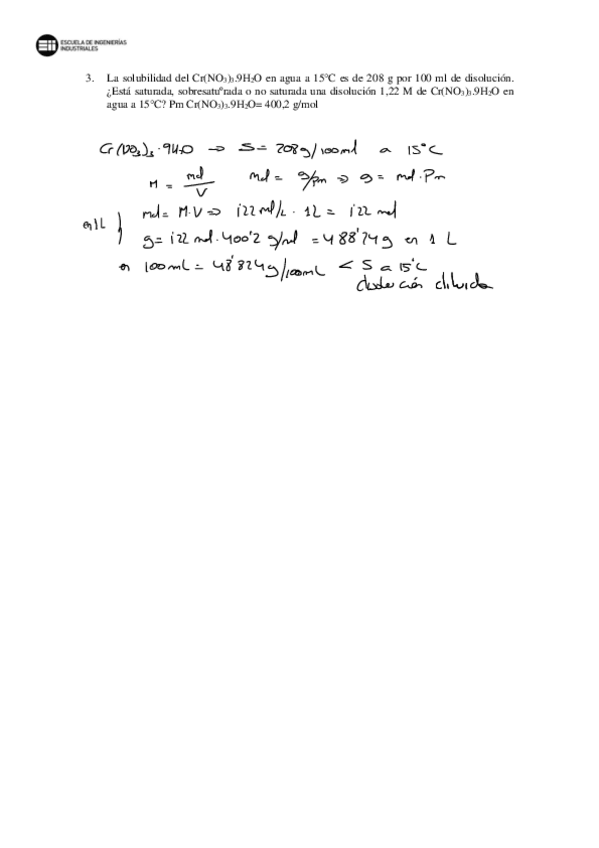 ESCUELA DE INGENIERÍAS
INDUSTRIALES
3. La solubilidad del Cr(NO3)3.9H2O en agua a 15ºC es de 208 g por 100 ml de disolución.
¿Está saturada, sobresatuºrada o no saturada una disolución 1,22 M de Cr(NO3)3.9H2O en
agua a 15ºC? Pm Cr(NO3)3.9H2O= 400,2 g/mol
Cr(NO3)3·9H2O → S= 208g/100ml a 15°C
M = mol/V mol = g/Pm ⇒ g = mol·Pm
en 1L } mol= M·V ⇒ 1'22 mol/L · 1L = 1'22 mol
g= 1'22 mol·400'2 g/mol = 488'24g en 1 L
en 100mL = 48'824g/100mL < S a 15°C
disolución diluida